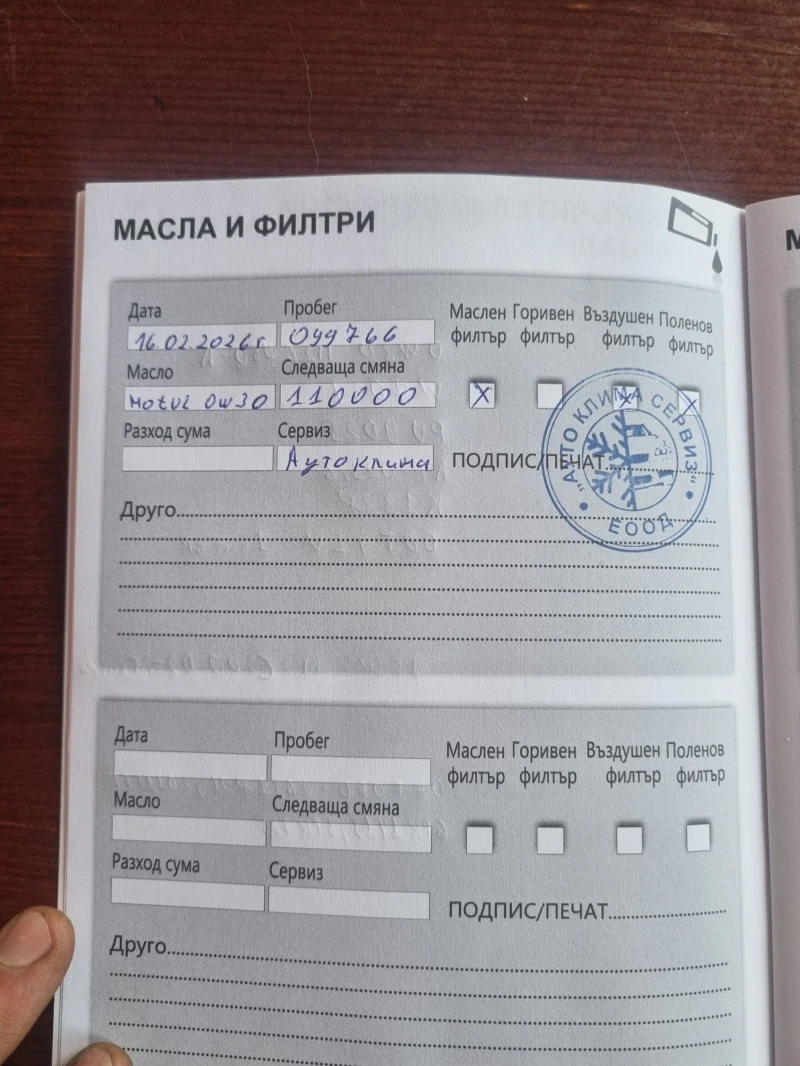 МАСЛА И ФИЛТРИ
Дата Пробег Маслен филтър Горивен филтър Въздушен филтър Поленов филтър
16.02.2026г. 099766
Масло Следваща смяна
Motul 0w30 110000 X X X
Разход сума Сервиз
Аутоклима ПОДПИС/ПЕЧАТ
"АУТО КЛИМА СЕРВИЗ" ЕООД
Друго
Дата Пробег Маслен филтър Горивен филтър Въздушен филтър Поленов филтър
Масло Следваща смяна
Разход сума Сервиз
ПОДПИС/ПЕЧАТ
Друго
М